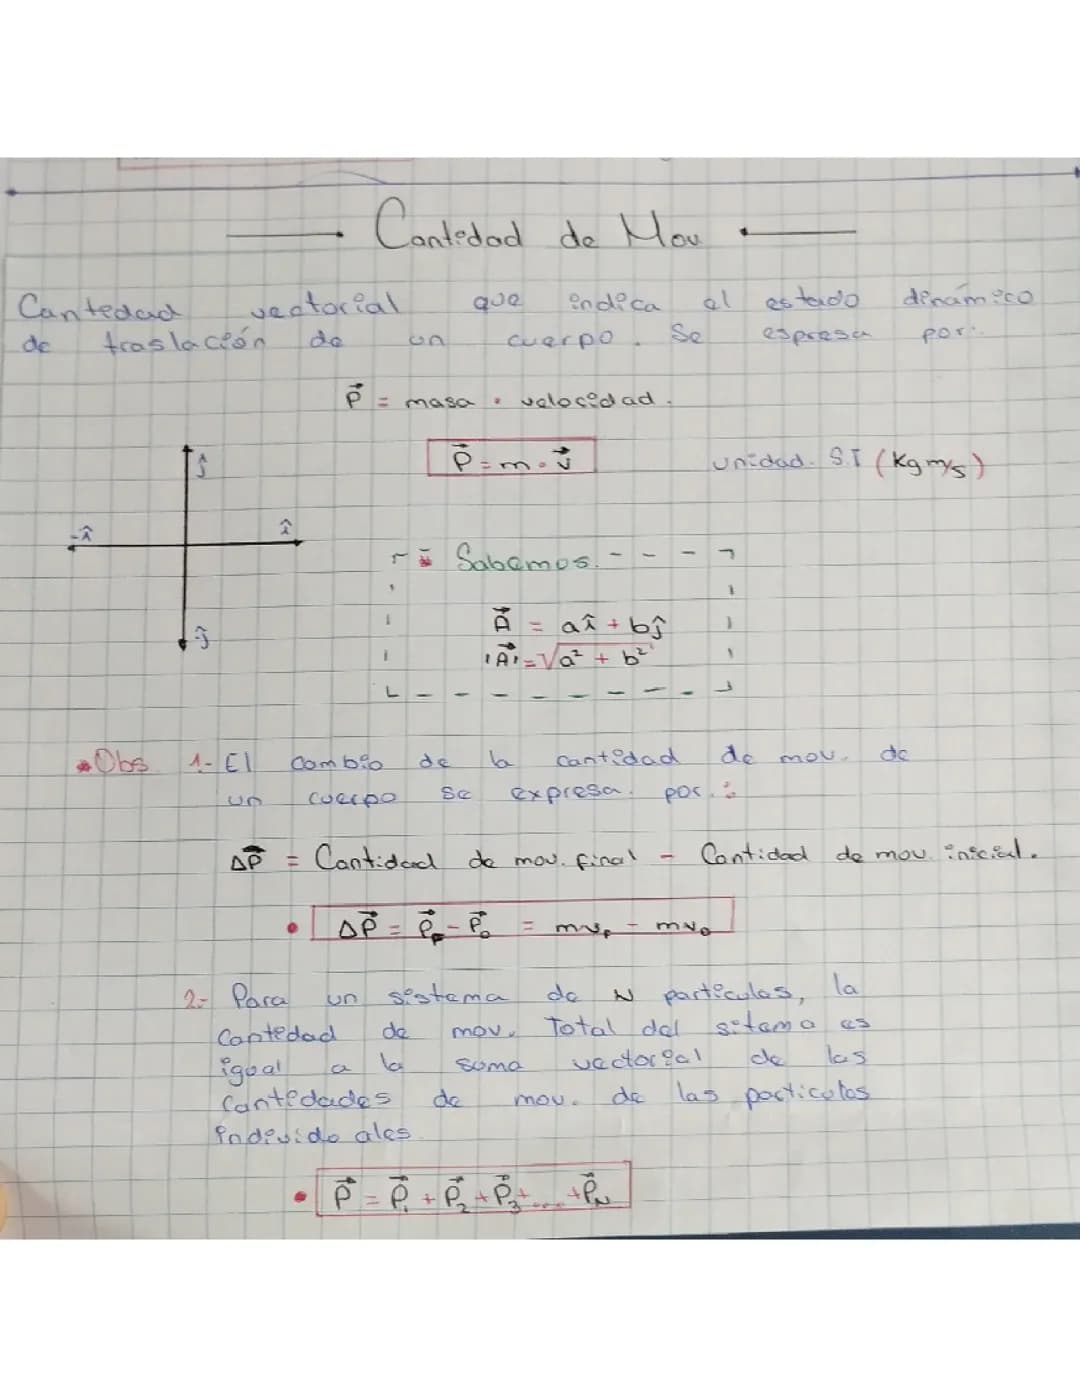 Cantidad de Mov
Cantedad vectorial que indica el estado dinámico
de traslación de un cuerpo. Se espresa por:
P⃗ = masa · velocidad.
P⃗ = m · v⃗
unidad. S.I (Kg m/s)
ĵ
-î î
-ĵ
Sabemos.
A⃗ = aî + bĵ
|A⃗| = √a² + b²
Obs 1.- El cambio de la cantidad de mov. de
un cuerpo se expresa. por.:
ΔP⃗ = Cantidad de mov. final - Cantidad de mov. inicial.
ΔP⃗ = P⃗F - P⃗o = mvF - mvo
2.- Para un sistema de N particulas, la
Cantedad de mov. Total del sitema es
igual a la suma vectorial de las
Cantidades de mov. de las particulas
individuales.
P⃗ = P⃗1 + P⃗2 + P⃗3 + .... + P⃗N